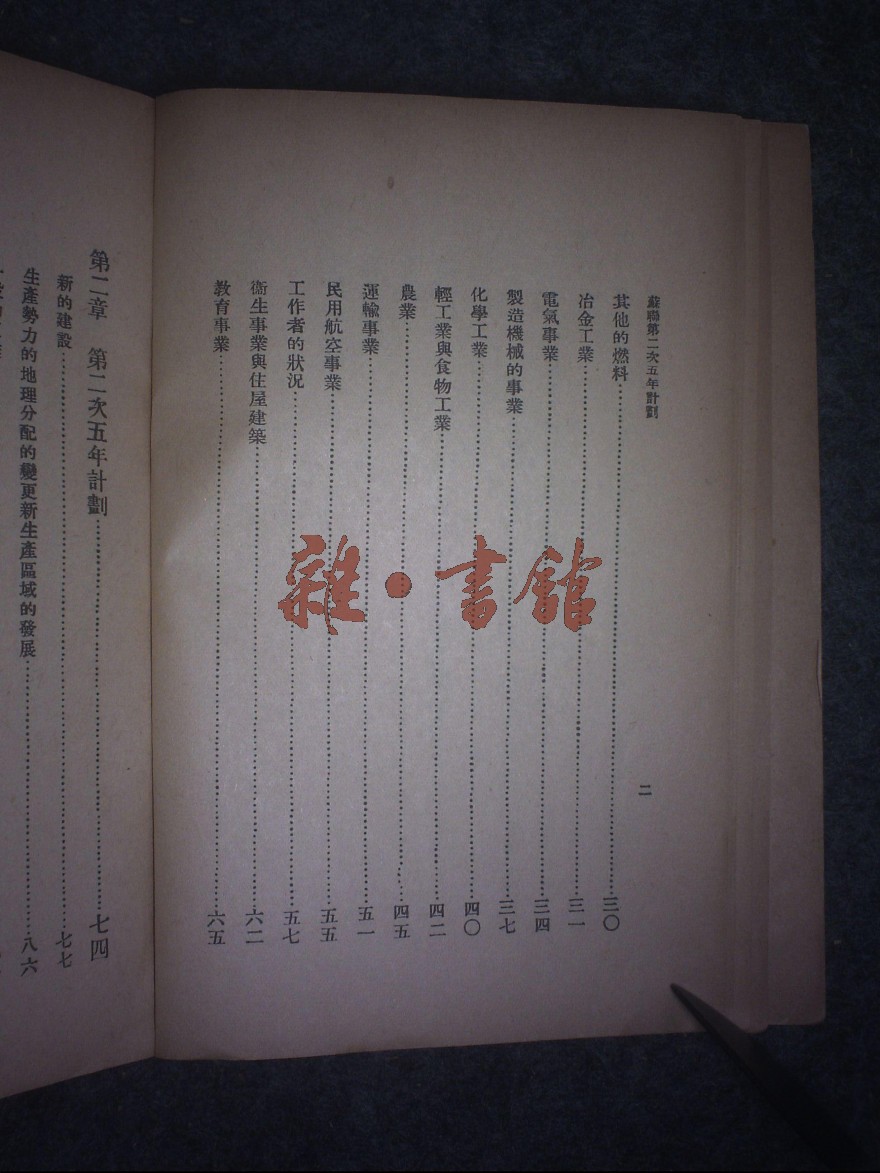 蘇聯第二次五年計劃
二
其他的燃料 三〇
冶金工業 三一
電氣事業 三四
製造機械的事業 三七
化學工業 四〇
輕工業與食物工業 四二
農業 四五
運輸事業 五一
民用航空事業 五五
工作者的狀況 五七
衞生事業與住屋建築 六二
教育事業 六五
第二章 第二次五年計劃 七四
新的建設 七七
生產勢力的地理分配的變更新生產區域的發展 八六
雜·書館